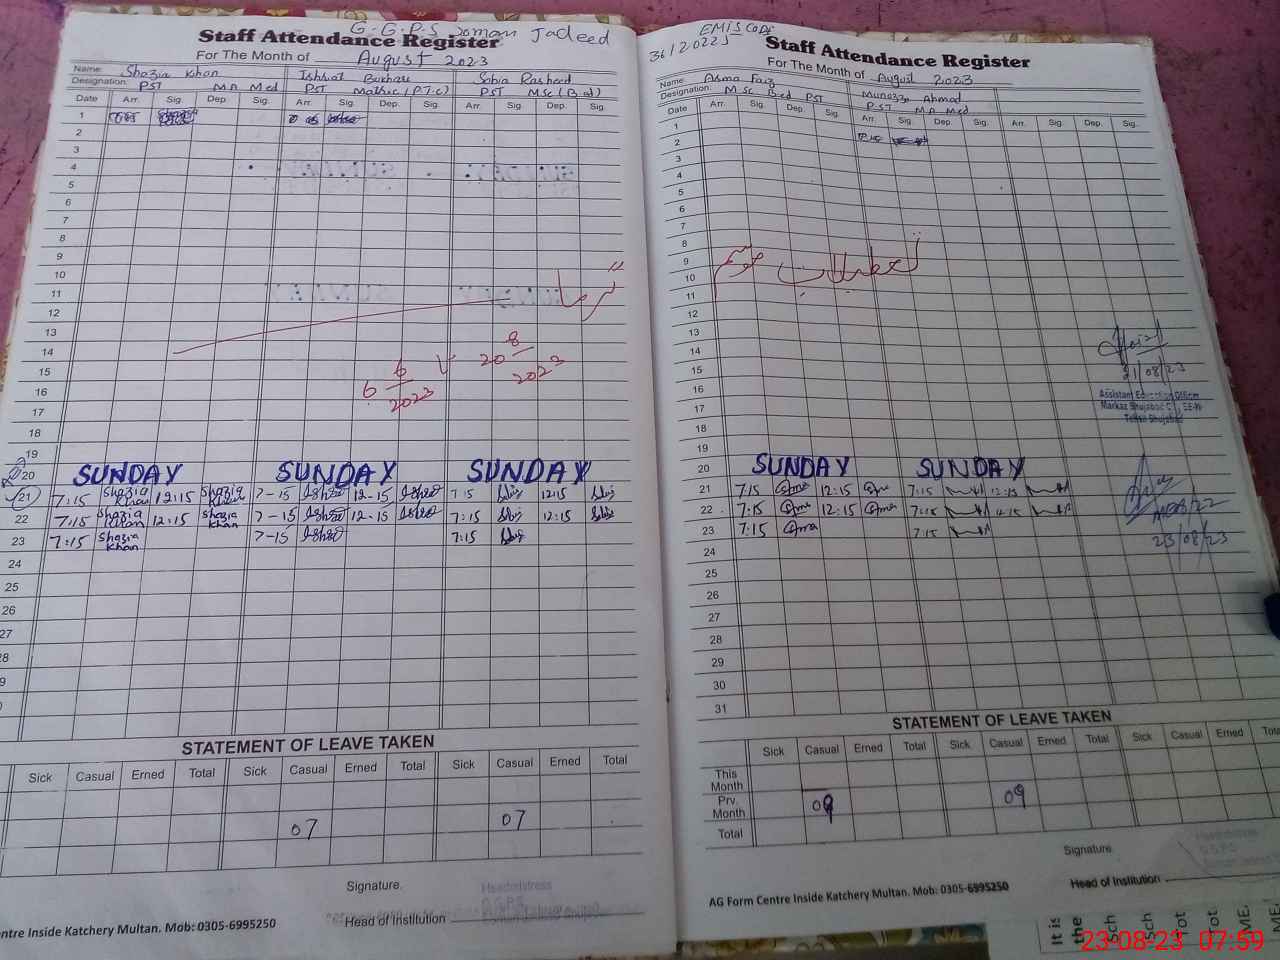 G.G.P.S Joman Jadeed
Staff Attendance Register
For The Month of August 2023
Name: Shazia Khan Ishrat Bukhari Sobia Rasheed
Designation: PST MA Med PST Matric (P.T.C) PST MSc (B.ed)
Date Arr. Sig. Dep. Sig. Arr. Sig. Dep. Sig. Arr. Sig. Dep. Sig.
1
2
3
4
5
6
7
8
9
10
11
12
13
14
15
16
17
18
19
20 SUNDAY SUNDAY SUNDAY
21 7:15 Shazia Khan 12:15 Shazia Khan 7-15 12-15 7:15 12:15
22 7:15 Shazia Khan 12:15 Shazia Khan 7-15 12-15 7:15 12:15
23 7:15 Shazia Khan 7-15 7:15
24
25
26
27
28
9
گرما
6 6 2023
20 8 2023
STATEMENT OF LEAVE TAKEN
Sick Casual Erned Total Sick Casual Erned Total Sick Casual Erned Total
07 07
Signature.
Head of Institution
ntre Inside Katchery Multan. Mob: 0305-6995250
EMIS CODE
36120225
Staff Attendance Register
For The Month of August 2023
Name: Asma Faiz Munazza Ahmad
Designation: M Sc B.ed PST PST MA Med
Date Arr. Sig. Dep. Sig. Arr. Sig. Dep. Sig. Arr. Sig. Dep. Sig.
1
2
3
4
5
6
7
8
9
10
11
12
13
14
15
16
17
18
19
20 SUNDAY SUNDAY
21 7:15 Asma 12:15 Asma 7:15 12:15
22 7:15 Asma 12:15 Asma 7:15 12:15
23 7:15 Asma 7:15
24
25
26
27
28
29
30
31
تعطیلات موسم
21/08/23
Assistant Education Officer
Markaz Shujabad
Tehsil Shujabad
23/08/23
STATEMENT OF LEAVE TAKEN
Sick Casual Erned Total Sick Casual Erned Total Sick Casual Erned Total
This Month
Prv. Month 09 09
Total
Signature.
Head of Institution
AG Form Centre Inside Katchery Multan. Mob: 0305-6995250
Headmistress
G.G.P.S
It is
the
Sch
Sch
Tot
Tot
ME
23-08-23 07:59